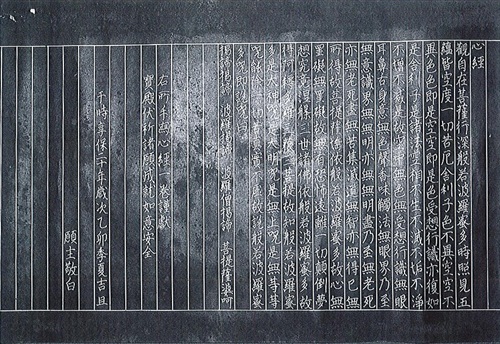 心経
觀自在菩薩行深般若波羅蜜多時照見五
蘊皆空度一切苦厄舍利子色不異空空不
異色色即是空空即是色受想行識亦復如
是舍利子是諸法空相不生不滅不垢不淨
不増不減是故空中無色無受想行識無眼
耳鼻舌身意無色聲香味觸法無眼界乃至
無意識界無無明亦無無明盡乃至無老死
亦無老死盡無苦集滅道無智亦無得已無
所得故菩提薩埵依般若波羅蜜多故心無
罣礙無罣礙故無有恐怖遠離一切顛倒夢
想究竟涅槃三世諸佛依般若波羅蜜多故
得阿耨多羅三藐三菩提故知般若波羅蜜
多是大神呪是大明呪是無上呪是無等等
呪能除一切苦真實不虚故説般若波羅蜜
多呪即説呪曰
揭諦揭諦 波羅僧揭諦 菩提薩婆呵
右所手写心經一巻謹獻
寶殿伏祈諸願成就如意安全
于時享保二十年歳次乙卯季夏吉旦
願主敬白